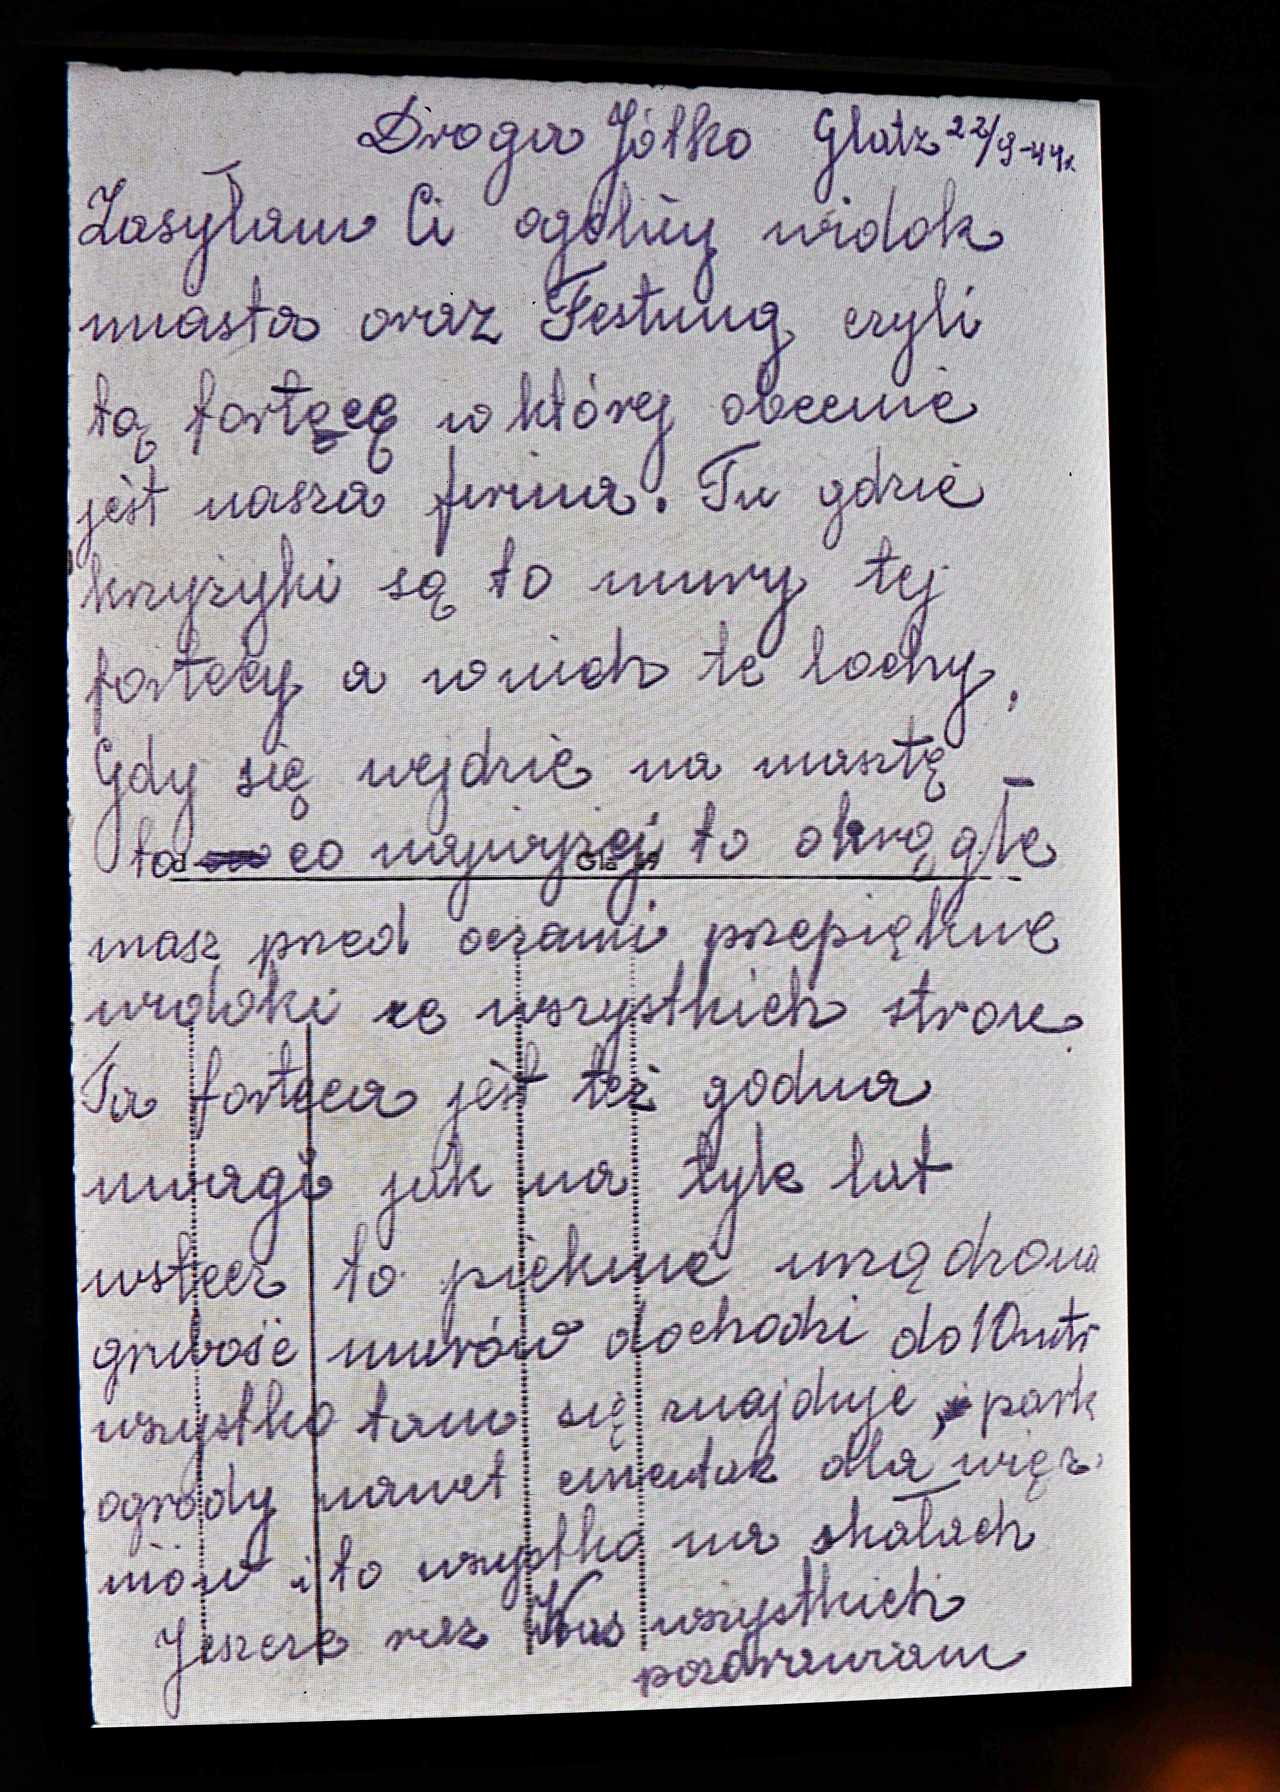 Droga Jólko Glatz 22/9-44r
Zasyłam Ci ogólny widok
miasta oraz Festung czyli
tą fortecę w której obecnie
jest nasza firma. Tu gdzie
krzyżyki są to mury tej
fortecy a w nich te lochy.
Gdy się wejdzie na masztę
to co najwyżej to okrągłe
masz przed oczami przepiękne
widoki ze wszystkich stron.
Ta forteca jest też godna
uwagi jak na tyle lat
wstecz to pięknie urządzona
grubość murów dochodzi do 10 mtr
wszystko tam się znajduje, park
ogrody nawet cmentarz dla więź
niów i to wszystko na skałach
Jeszcze raz Was wszystkich
pozdrawiam